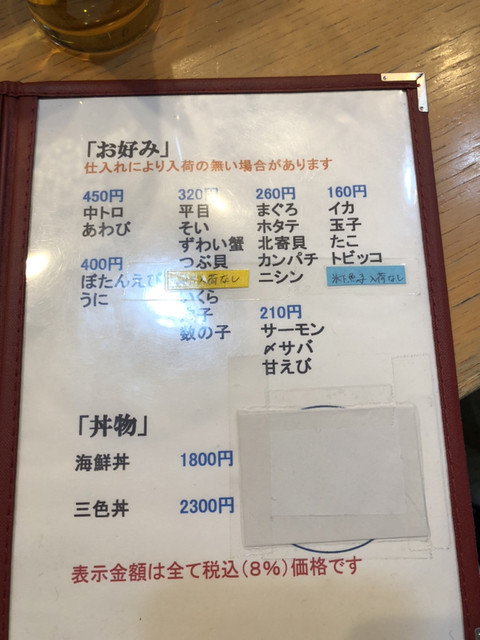 「お好み」
仕入れにより入荷の無い場合があります
450円
中トロ
あわび
400円
ぼたんえび
うに
320円
平目
そい
ずわい蟹
つぶ貝
入荷なし
いくら
子
数の子
260円
まぐろ
ホタテ
北寄貝
カンパチ
ニシン
210円
サーモン
〆サバ
甘えび
160円
イカ
玉子
たこ
トビッコ
入荷なし
「丼物」
海鮮丼 1800円
三色丼 2300円
表示金額は全て税込(8%)価格です